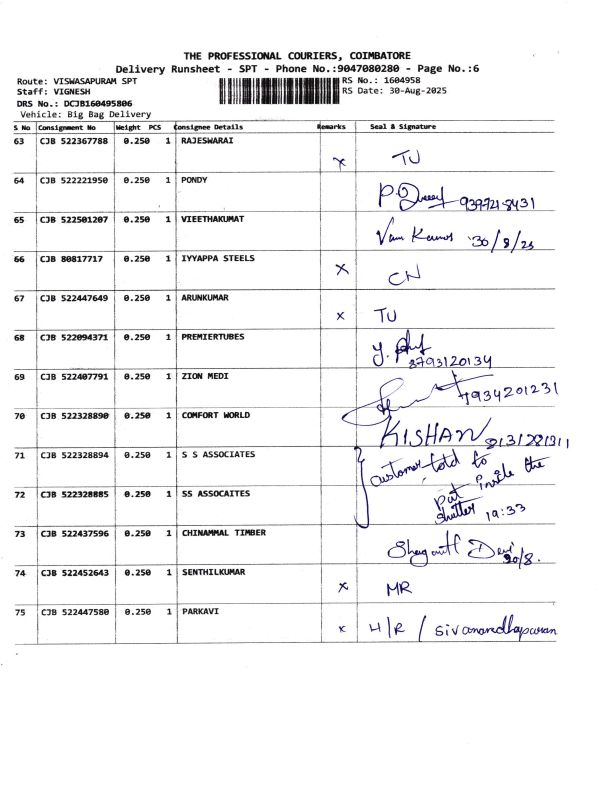 THE PROFESSIONAL COURIERS, COIMBATORE
Delivery Runsheet - SPT - Phone No.:9047080280 - Page No.:6
Route: VISWASAPURAM SPT RS No.: 1604958
Staff: VIGNESH RS Date: 30-Aug-2025
DRS No.: DCJB160495806
Vehicle: Big Bag Delivery
S No Consignment No Weight PCS Consignee Details Remarks Seal & Signature
63 CJB 522367788 0.250 1 RAJESWARAI x TU
64 CJB 522221950 0.250 1 PONDY
65 CJB 522501207 0.250 1 VIEETHAKUMAT 30/8/25
66 CJB 80817717 0.250 1 IYYAPPA STEELS x CN
67 CJB 522447649 0.250 1 ARUNKUMAR x TU
68 CJB 522094371 0.250 1 PREMIERTUBES 8793120134
69 CJB 522407791 0.250 1 ZION MEDI 7934201231
70 CJB 522328890 0.250 1 COMFORT WORLD KISHAN
71 CJB 522328894 0.250 1 S S ASSOCIATES customer told to
put inside the
72 CJB 522328885 0.250 1 SS ASSOCAITES shutter 19:33
73 CJB 522437596 0.250 1 CHINAMMAL TIMBER Devi
30/8.
74 CJB 522452643 0.250 1 SENTHILKUMAR x MR
75 CJB 522447580 0.250 1 PARKAVI x H/R / Sivanandhapuram